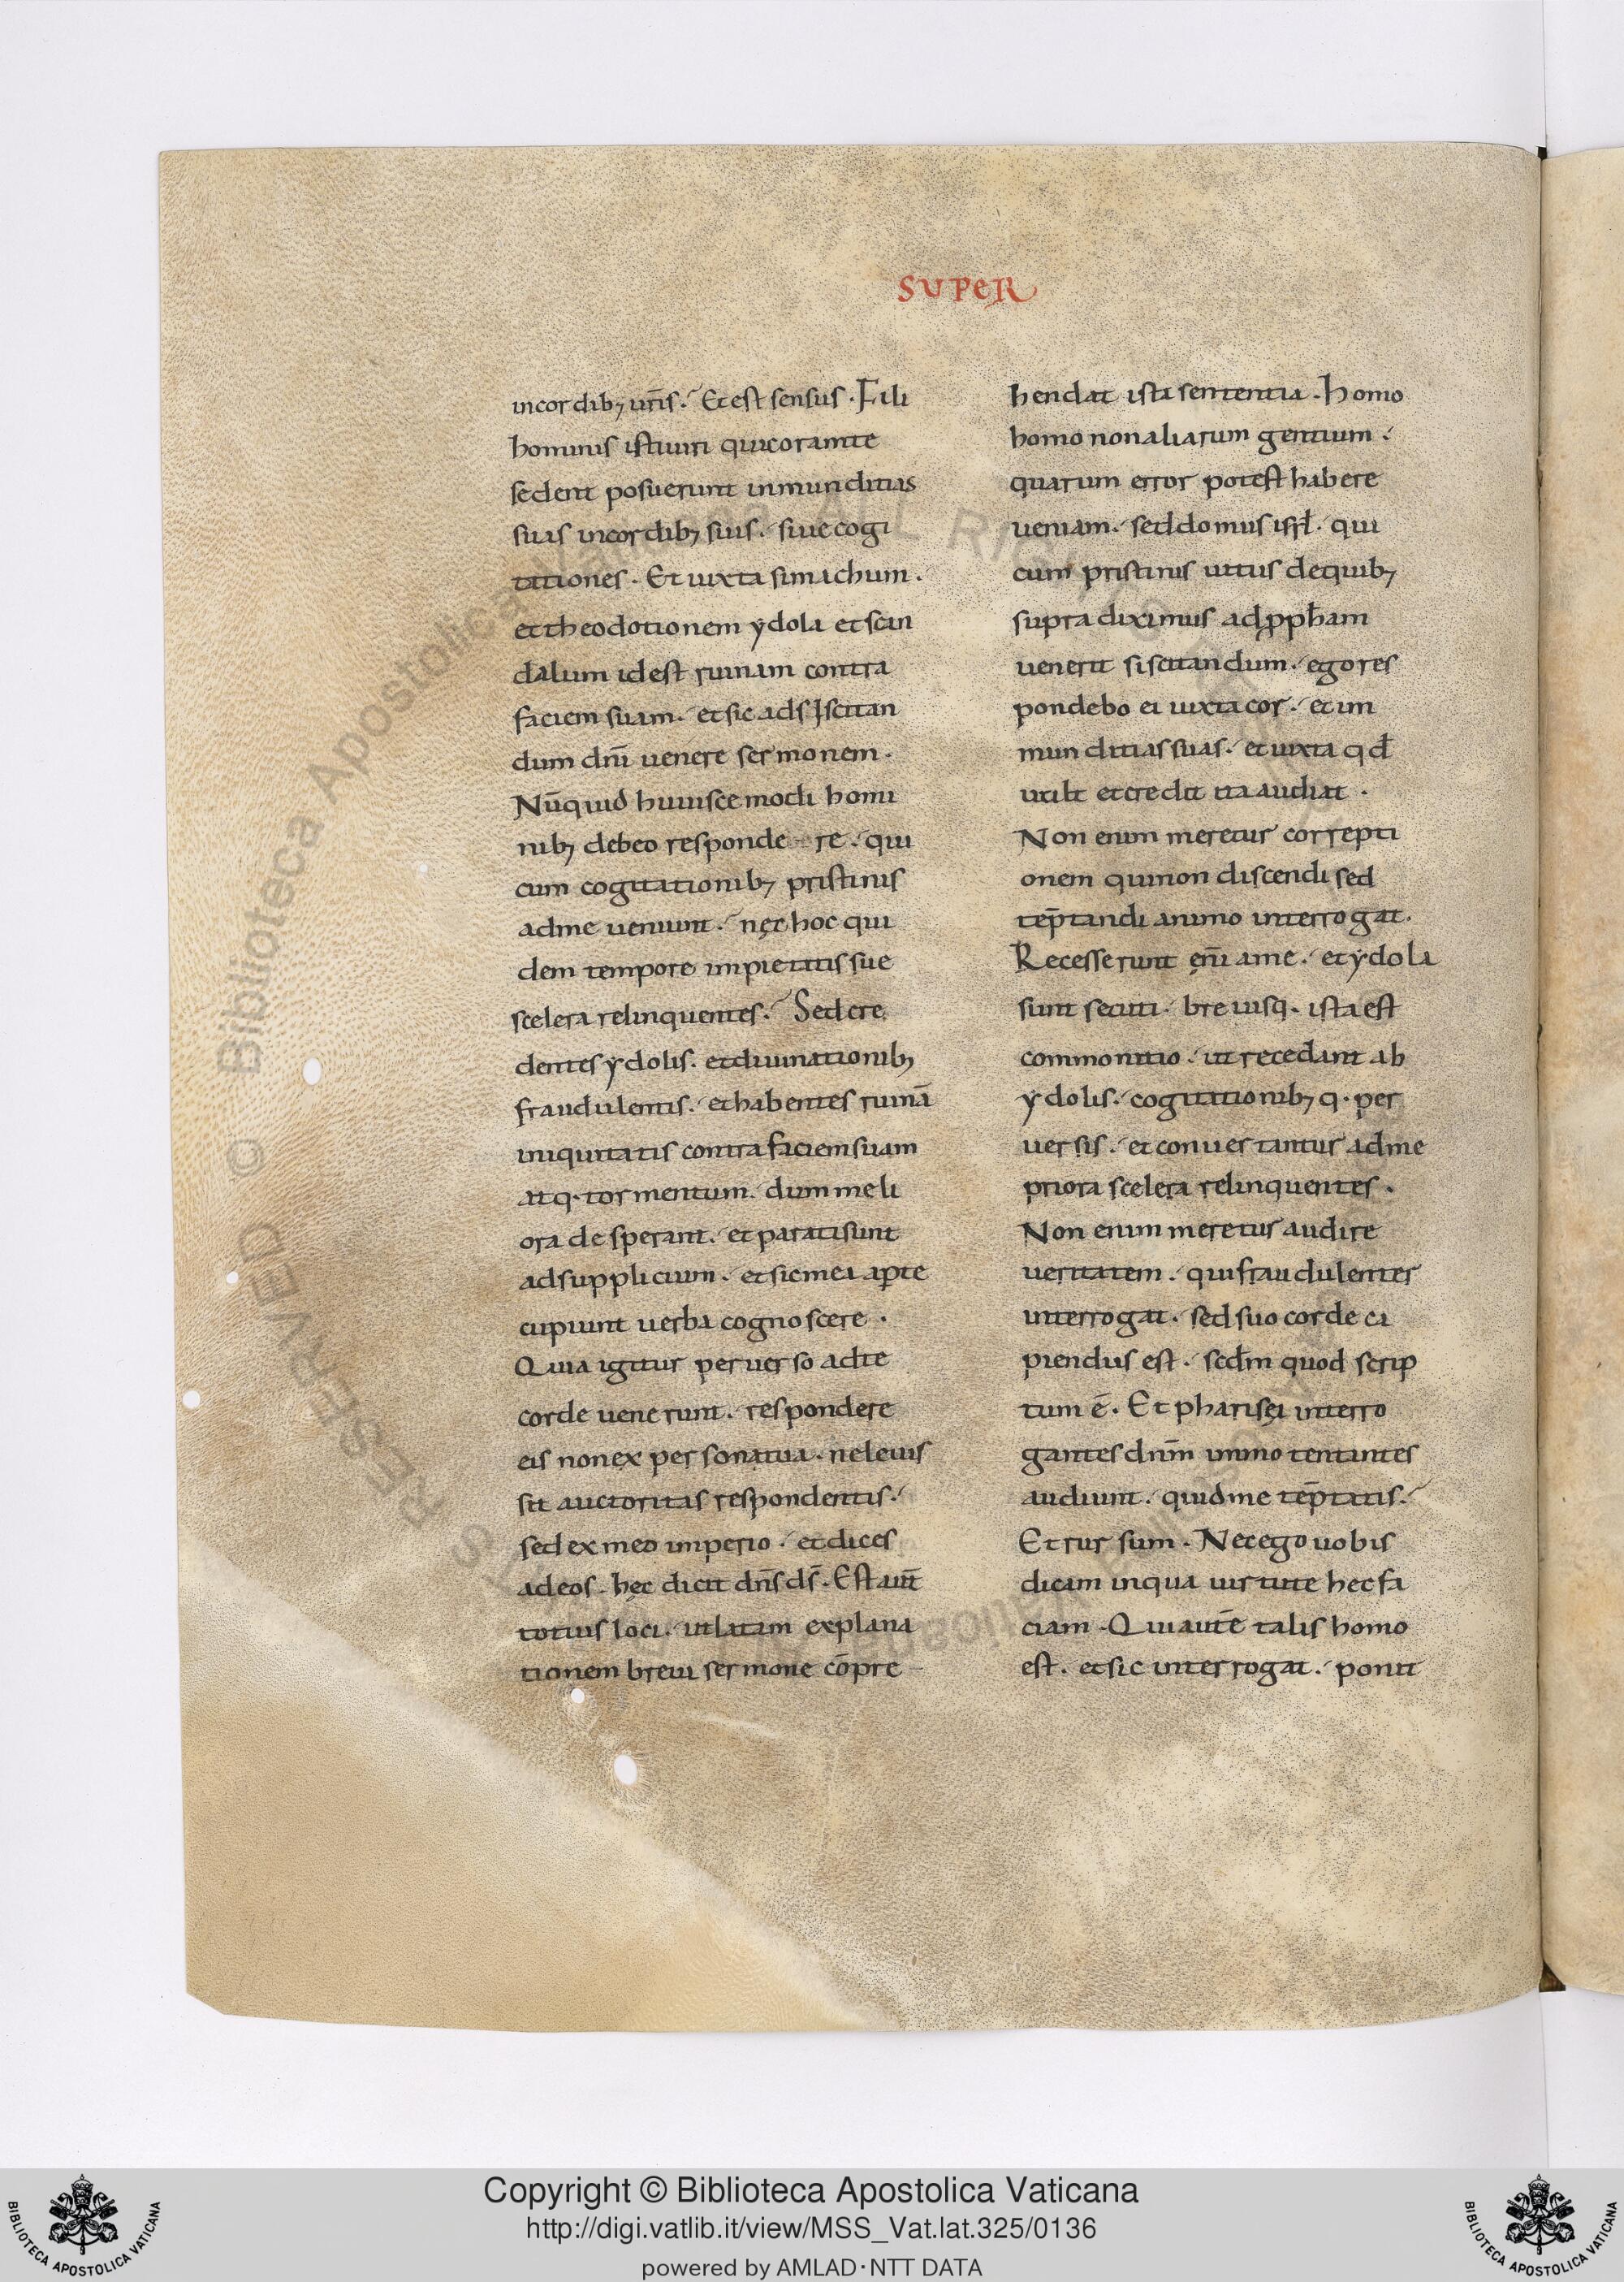 SUPER
incordib; ur̄is. Et est sensus. Fili
hominis isti uiri qui coram te
sedent posuerunt inmunditias
suas in cordib; suis. siue cogi
tationes. Et iuxta simachum.
et theodotionem ydola et scan
dalum id est ruinam contra
faciem suam. et sic ad sIscitan
dum dn̄i uenere sermonem.
Nūquid huiuscemodi homi
nib; debeo responde re. qui
cum cogitationib; pristinis
ad me ueniunt. nęc hoc qui
dem tempore impietatis sue
scelera relinquentes. Sed cre
dentes ydolis. et diuinationib;
fraudulentis. et habentes ruinā
iniquitatis contra faciem suam
atq. tormentum. dum meli
ora desperant. et parati sunt
ad supplicium. et sic mei ap̱te
cupiunt uerba cognoscere.
Quia igitur peruerso ad te
corde uenerunt. respondere
eis non ex persona tua. ne leuis
sit auctoritas respondentis.
sed ex meo imperio. et dices
ad eos. hęc dicit dn̄s ds̄. Est aut̄
totius loci. ut latam explana
tionem breui sermone cōpre
hendat ista sententia. Homo
homo non aliarum gentium.
quarum error potest habere
ueniam. sed domus isrł. qui
cum pristinis uitiis de quib;
supra diximus ad ꝓph̄am
uenerit siscitandum. ego res
pondebo ei iuxta cor. et im
munditias suas. et iuxta qđ
uult et credit ita audiat.
Non enim meretur correpti
onem qui non discendi sed
tēptandi animo interrogat.
Recesserunt eni᷒ a me. et ydola
sunt secuti. breuisq. ista est
commonitio. ut recedant ab
ydolis. cogitationib; q. per
uersis. et conuertantur ad me
priora scelera relinquentes.
Non enim meretur audire
ueritatem. qui fraudulenter
interrogat. sed suo corde ca
piendus est. sedm̄ quod scrip
tum ē. Et pharisęi interro
gantes dnm̄ immo tentantes
audiunt. quid me tēptatis.
Et rursum. Nec ego uobis
dicam in qua uirtute hec fa
ciam. Qui autē talis homo
est. et sic interrogat. ponit
Copyright © Biblioteca Apostolica Vaticana
http://digi.vatlib.it/view/MSS_Vat.lat.325/0136
powered by AMLAD·NTT DATA
BIBLIOTECA APOSTOLICA VATICANA
BIBLIOTECA APOSTOLICA VATICANA